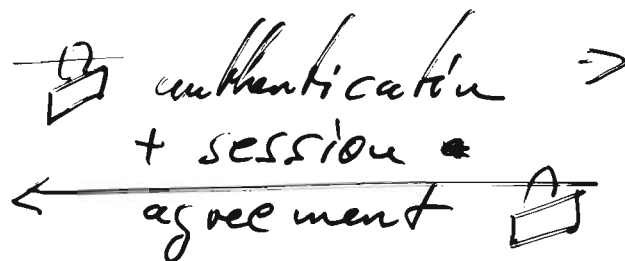 authentication
+ session
agreement